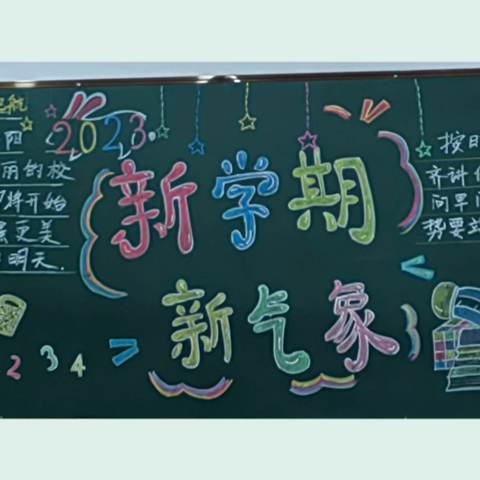 2023
新学期
新气象
航
阳
丽的校
将开始
更美
明天.
按
齐讲
问早
势要
2 3 4